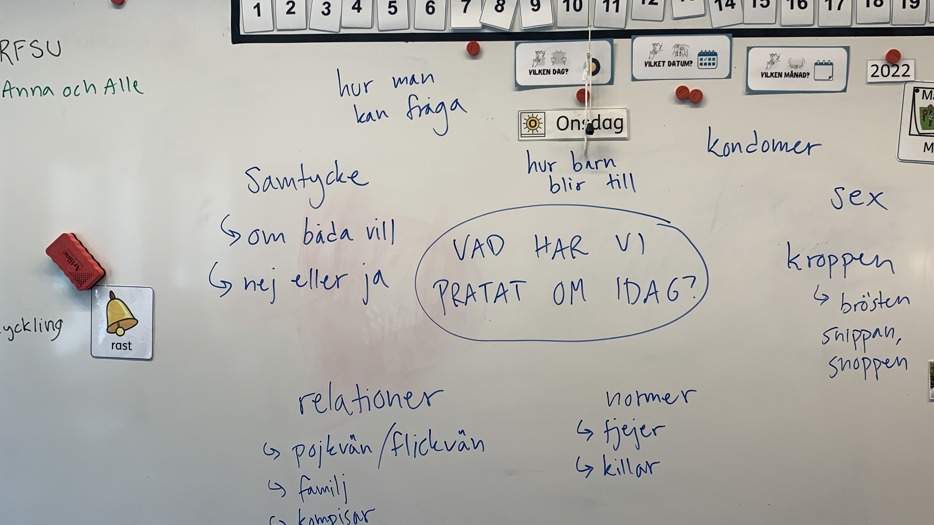 1 2 3 4 5 6 7 8 9 10 11 12 13 14 15 16 17 18 19
RFSU
Anna och Alle
VILKEN DAG?
VILKET DATUM?
VILKEN MÅNAD?
2022
Onsdag
hur man
kan fråga
hur barn
blir till
kondomer
sex
Samtycke
↳ om båda vill
↳ nej eller ja
VAD HAR VI
PRATAT OM IDAG?
kroppen
↳ brösten
snippan,
snoppen
Artline
rast
yckling
relationer
↳ pojkvän/flickvän
↳ familj
↳ kompisar
normer
↳ tjejer
↳ killar